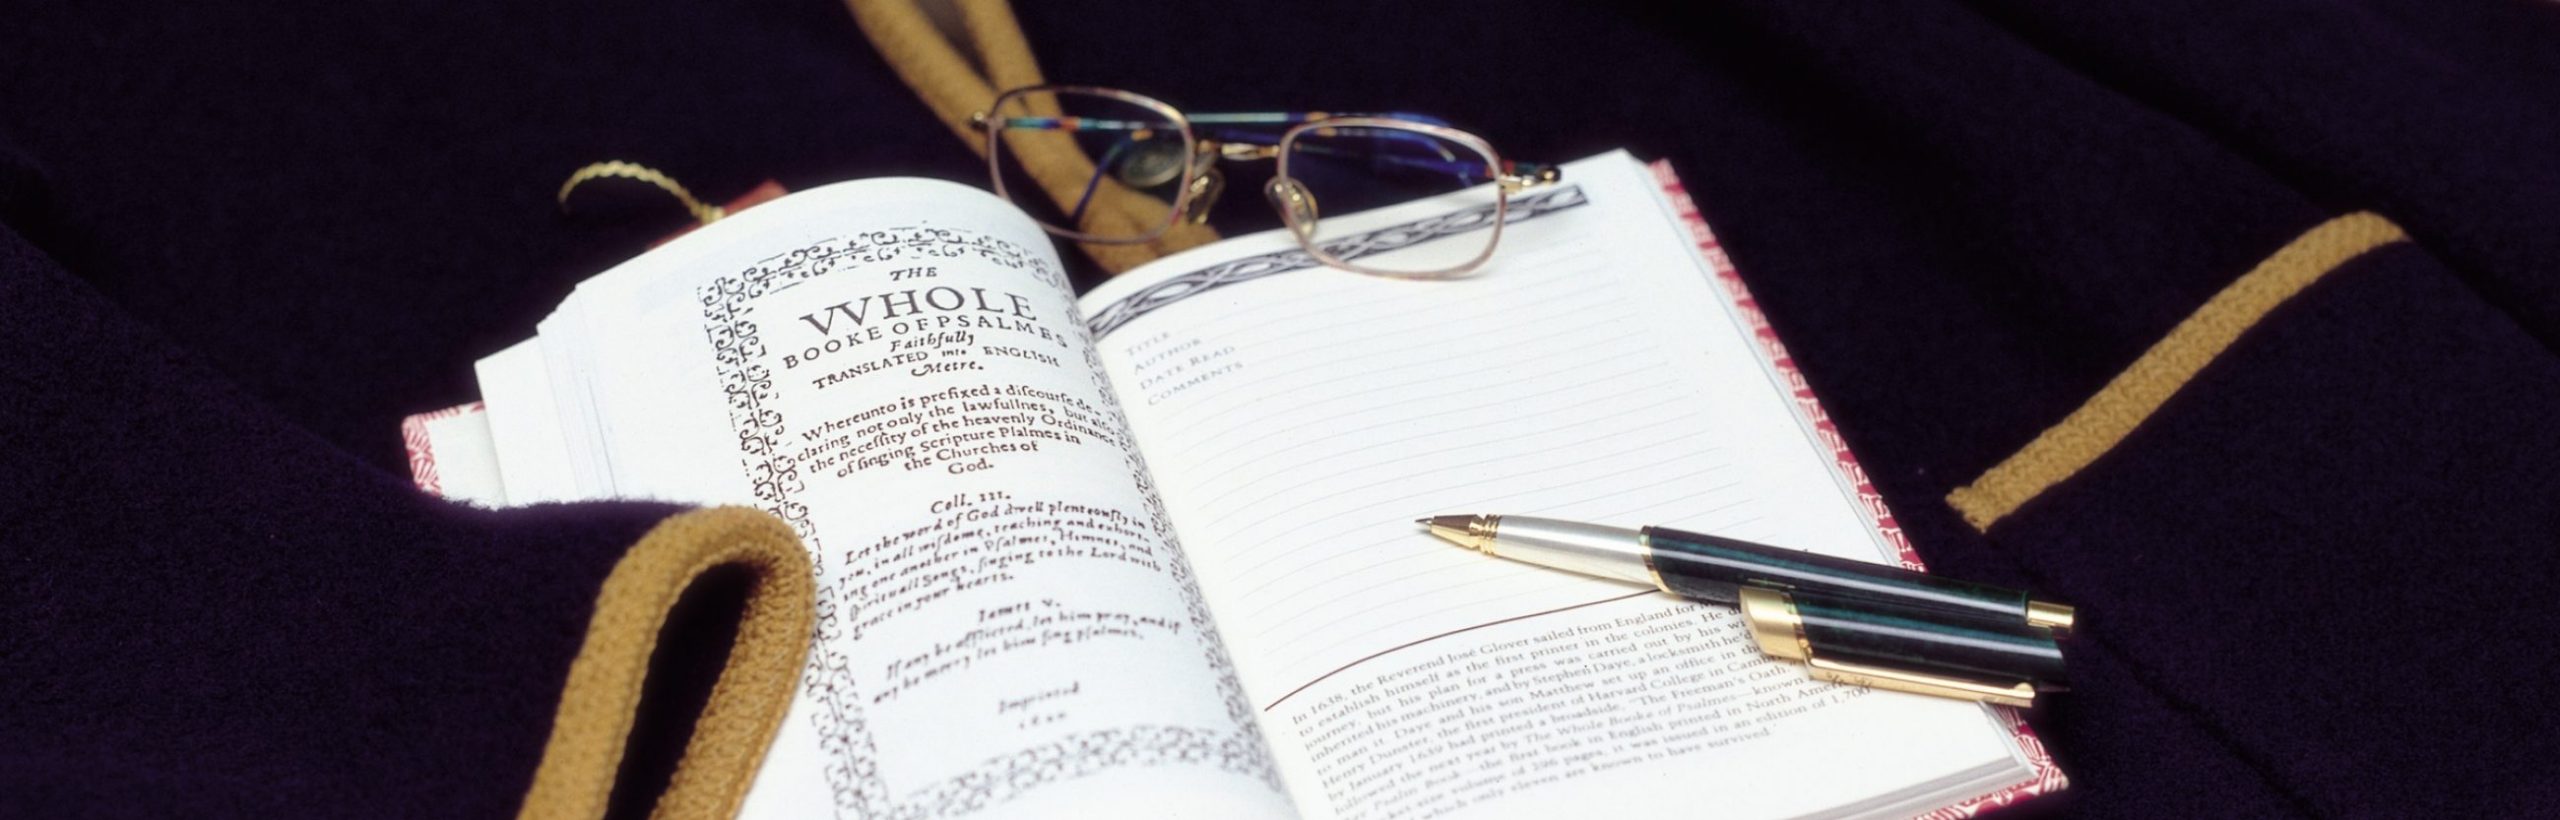 THE
VVHOLE
BOOKE OF PSALMES
Faithfully
TRANSLATED into ENGLISH
Metre.
Whereunto is prefixed a discourse de-
claring not only the lawfullnes, but also
the necessity of the heavenly Ordinance
of singing Scripture Psalmes in
the Churches of
God.
Coll. III.
Let the word of God dwell plenteously in
you, in all wisdome, teaching and exhort-
ing one another in Psalmes, Himnes, and
spirituall Songs, singing to the Lord with
grace in your hearts.
James V.
If any be afflicted, let him pray, and if
any be merry let him sing psalmes.
Imprinted
TITLE
AUTHOR
DATE READ
COMMENTS
In 1638, the Reverend José Glover sailed from England for
to establish himself as the first printer in the colonies. He
journey, but his plan for a press was carried out by his
inherited his machinery, and by Stephen Daye, a locksmith he'd
to man it. Daye and his son Matthew set up an office in the
Henry Dunster, the first president of Harvard College in
by January 1639 had printed a broadside, "The Freeman's Oath,"
followed the next year by The Whole Booke of Psalmes—known
Psalm Book—the first book in English printed in North
size volume of 296 pages, it was issued in an edition of 1,700
which only eleven are known to have survived.